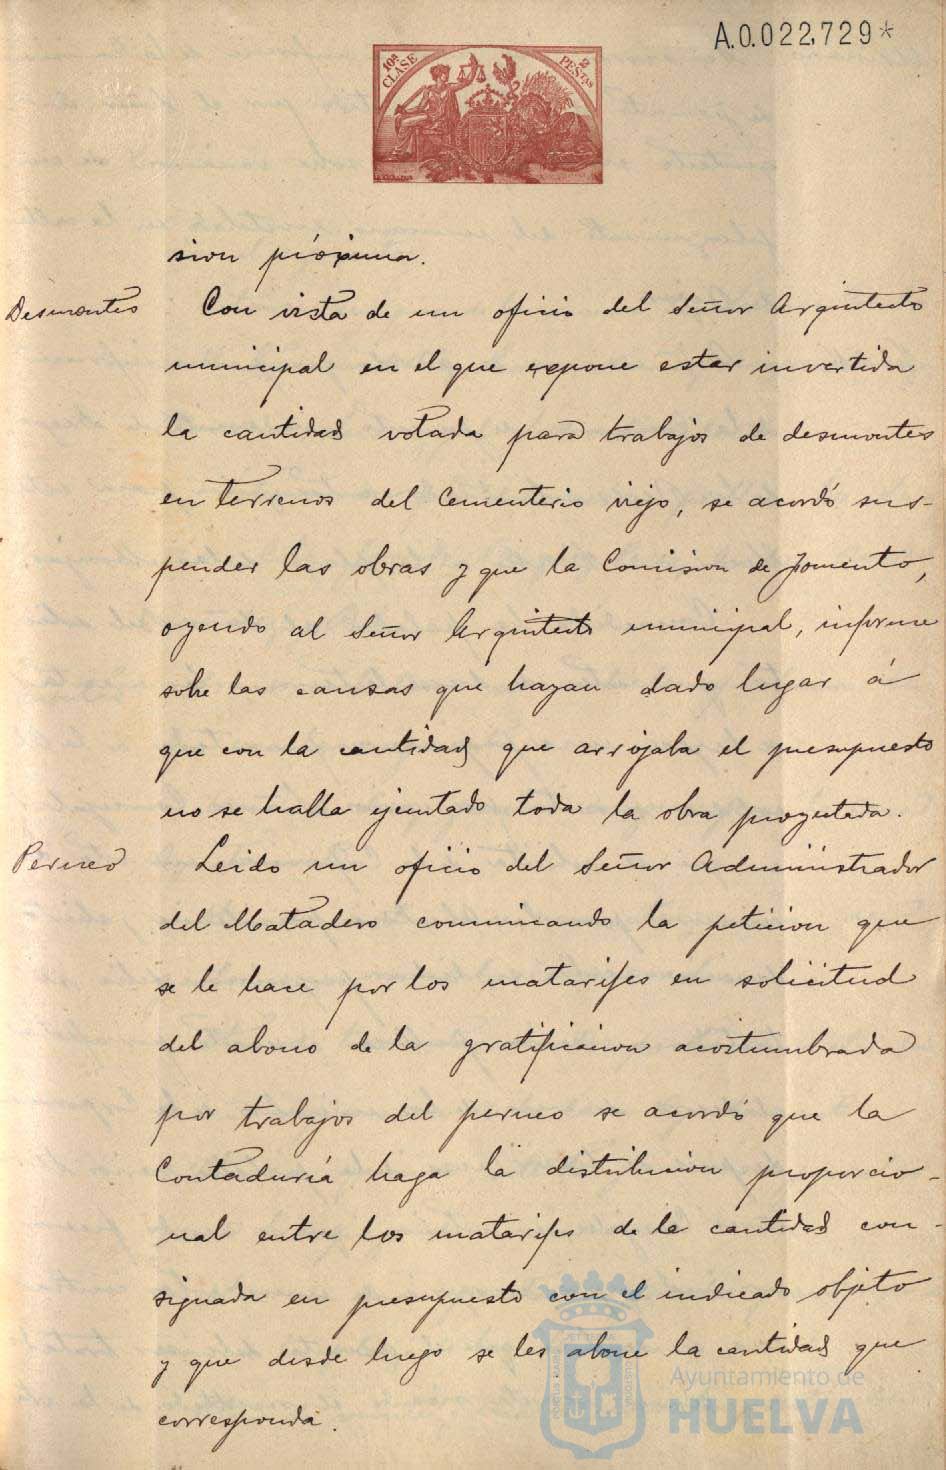 A.0.022,729*
10ª CLASE 2 PESTAS
sion próxima.
Desmontes
Con vista de un oficio del Señor Arquitecto
municipal en el que expone estar invertida
la cantidad votada para trabajos de desmontes
en terrenos del Cementerio viejo, se acordó sus-
pender las obras y que la Comision de Fomento,
oyendo al Señor Arquitecto municipal, informe
sobre las causas que hayan dado lugar á
que con la cantidad que arrojaba el presupuesto
no se halla ejecutado toda la obra proyectada.
Perneo
Leido un oficio del Señor Administrador
del Matadero comunicando la peticion que
se le hace por los matarifes en solicitud
del abono de la gratificacion acostumbrada
por trabajos del perneo se acordó que la
Contaduría haga la distribucion proporcio-
nal entre los matarifes de la cantidad con-
signada en presupuesto con el indicado objeto
y que desde luego se les abone la cantidad que
corresponda.
Ayuntamiento de
HUELVA